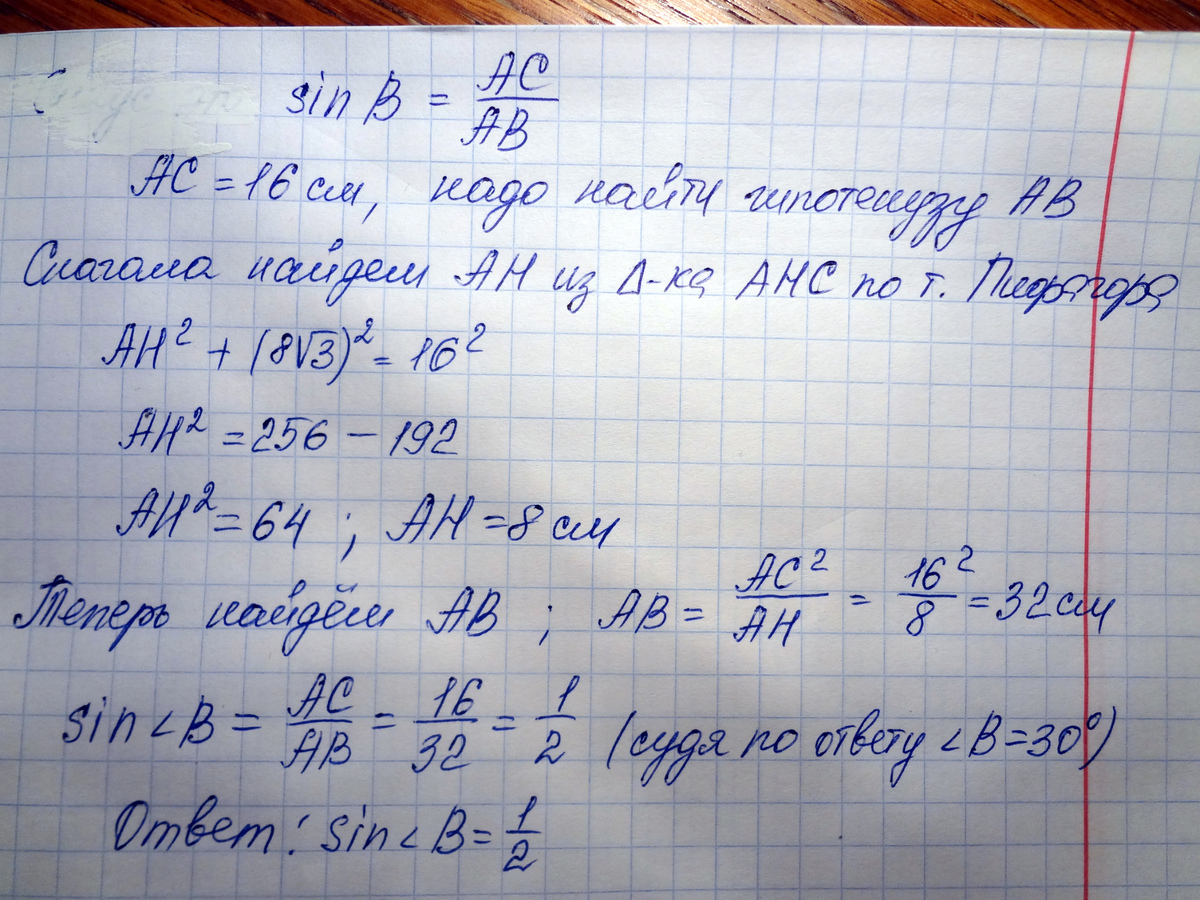 sin B = AC/AB
AC = 16 см, надо найти гипотенузу AB
Сначала найдем AH из Δ-ка AHC по т. Пифагора
AH² + (8√3)² = 16²
AH² = 256 − 192
AH² = 64 ; AH = 8 см
Теперь найдём AB ; AB = AC²/AH = 16²/8 = 32 см
sin ∠B = AC/AB = 16/32 = 1/2 (судя по ответу ∠B = 30°)
Ответ: sin ∠B = 1/2